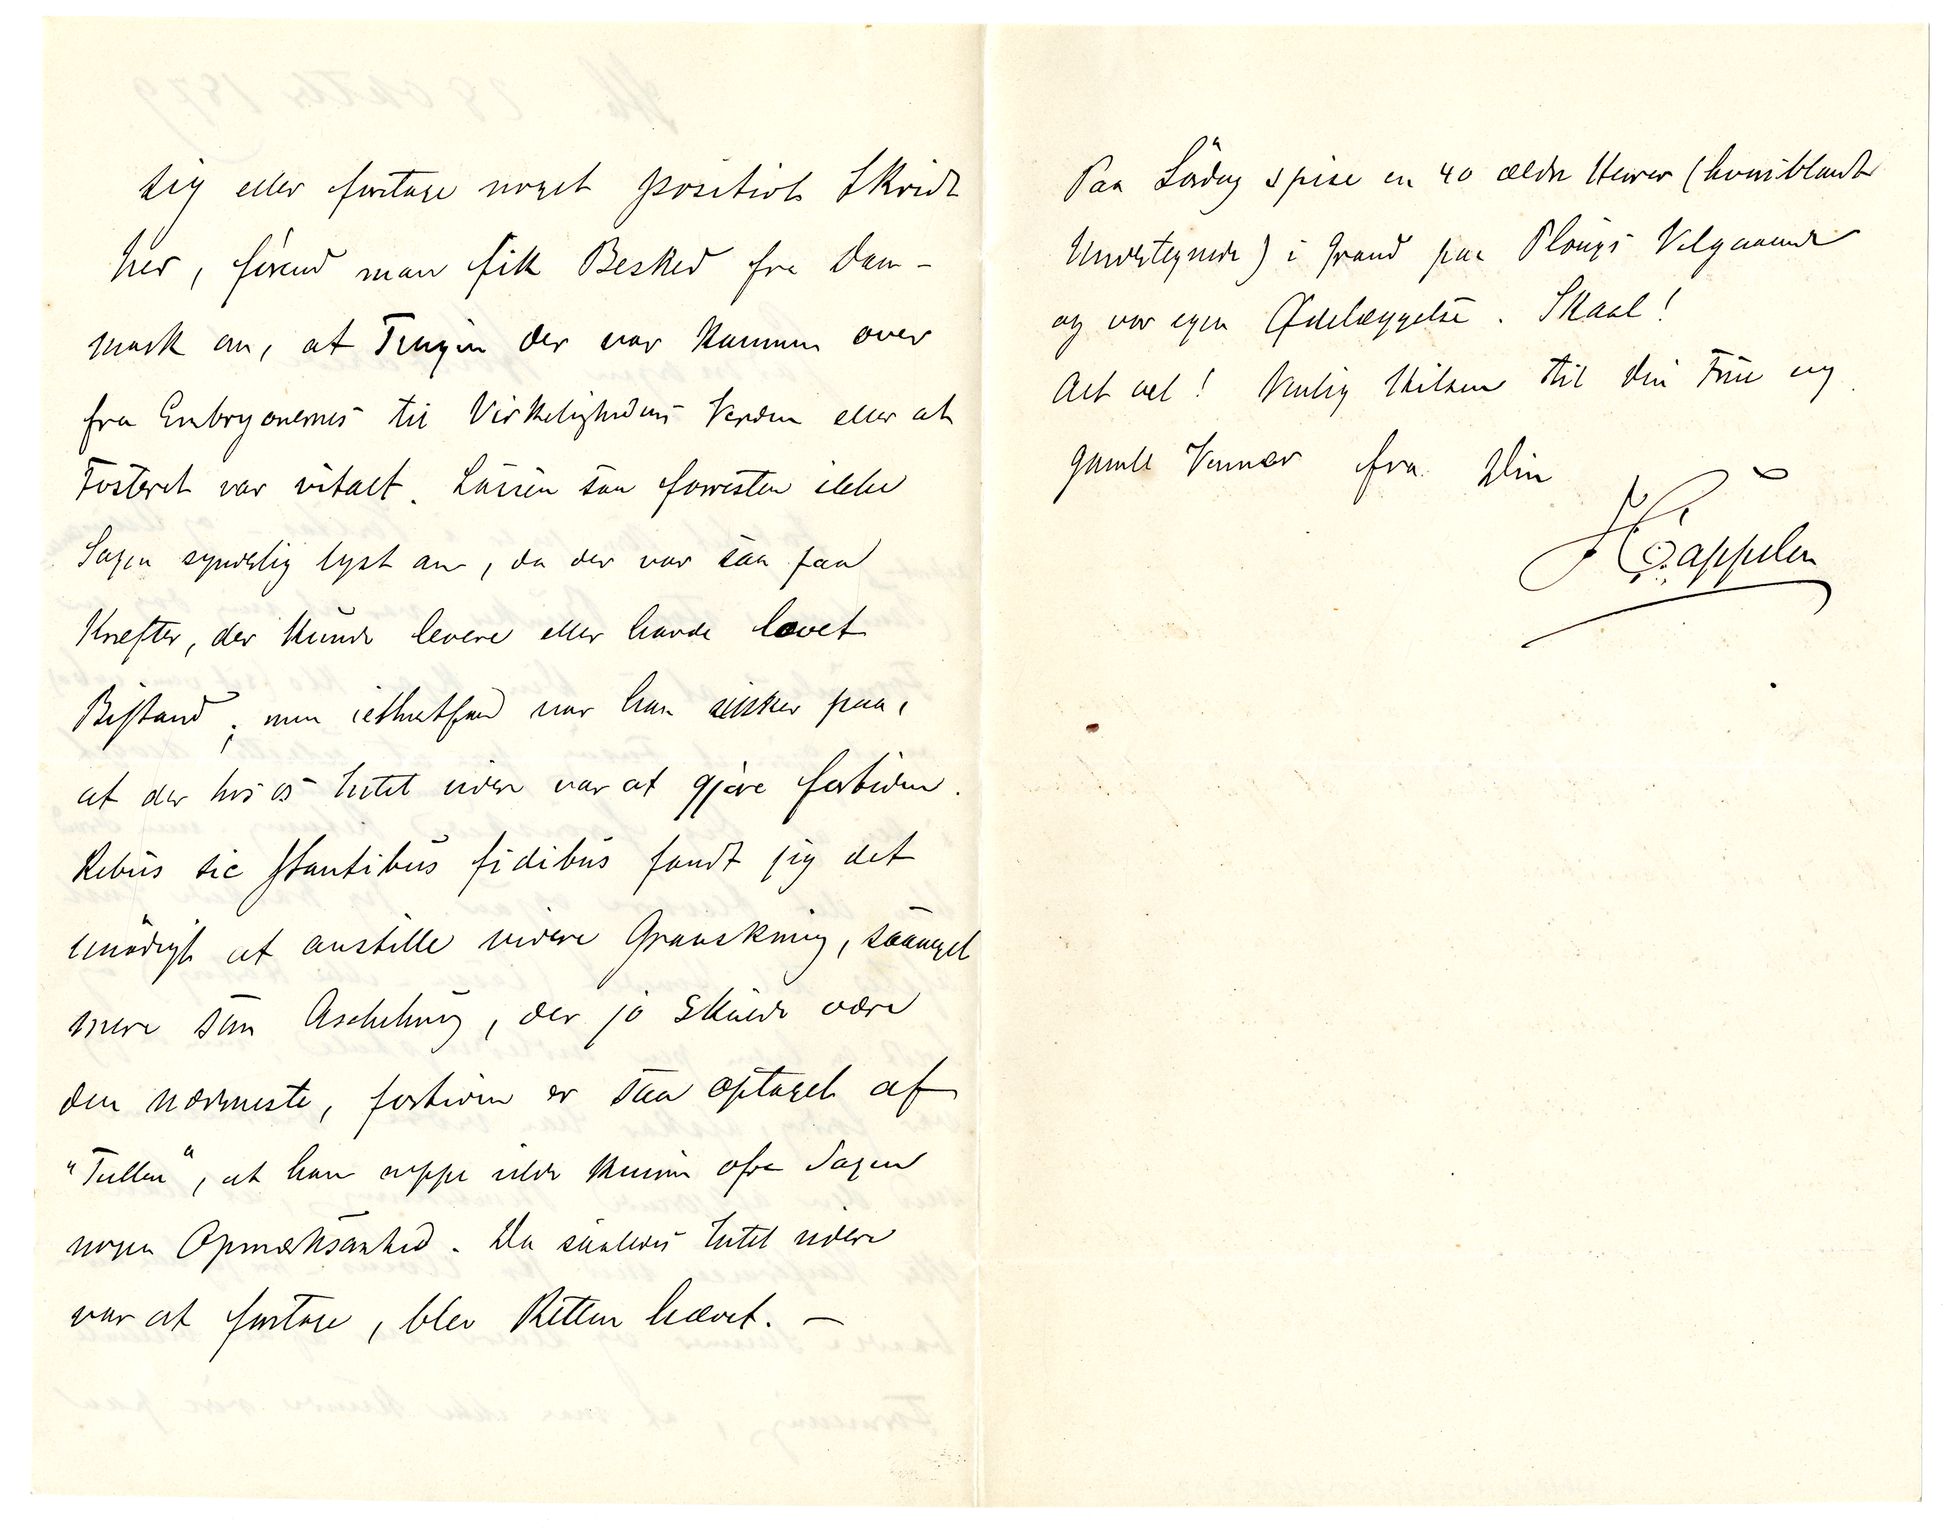 sig eller foretage noget positivt Skridt
her, förend man fik Besked fra Dan-
mark om, at Tingen der var kommen over
fra Embryonernes til Virkelighedens Verden eller at
Fosteret var vitalt. Lassen saa forresten ikke
Sagen synderlig lyst an, da der var saa faa
Kræfter, der kunde levere eller havde lovet
Bistand; men ialtfald var han sikker paa,
at der hos os Intet videre var at gjöre fortiden.
Rebus sic stantibus fidibus fandt jeg det
unödigt at anstille videre Granskning, saameget
mere som Aschehoug, der jo skulde være
den nærmeste, fortiden er saa optaget af
"Tullen", at han neppe vilde kunne ofre Sagen
nogen Opmærksomhed. Da saaledes Intet videre
var at foretage, blev Retten hævet. —
Paa Lördag spise en 40 ældre Herrer (hvoriblandt
Undertegnede) i Grand paa Plougs Velgaaende
og vor egen Ödelæggelse. Skaal!
Alt vel! Venlig Hilsen til din Frue og
gamle Venner fra Din
H Cappelen